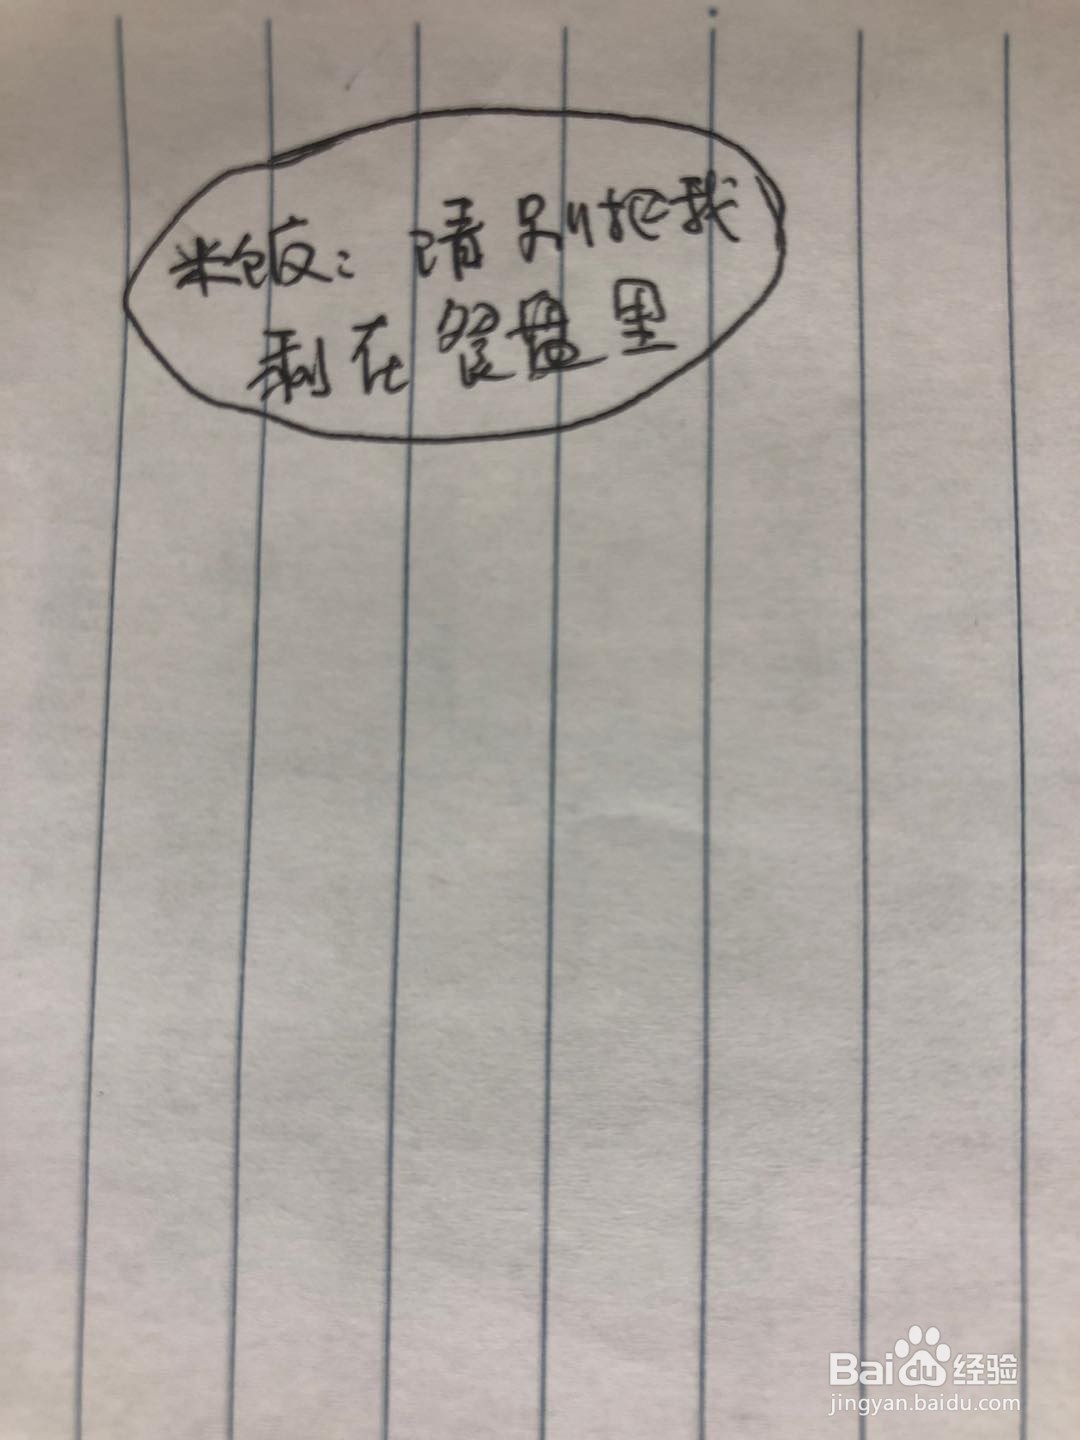 米饭：请别把我
剩在餐盘里
Baidu经验
jingyan.baidu.com